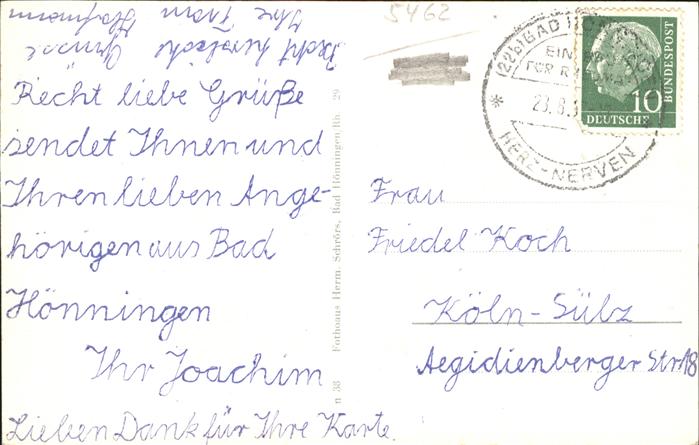 Recht liebe Grüße
sendet Ihnen und
Ihren lieben Ange-
hörigen aus Bad
Hönningen
Ihr Joachim
Lieben Dank für Ihre Karte.
Recht herzliche Grüsse
Ihre Frau
5462
n 38 Fotohaus Herm. Schrörs, Bad Hönningen/Rh. 29
(22b) BAD
EIN
FÜR
23.8.
HERZ-NERVEN
10
DEUTSCHE
BUNDESPOST
Frau
Friedel Koch
Köln-Sülz
Aegidienberger Str. 18